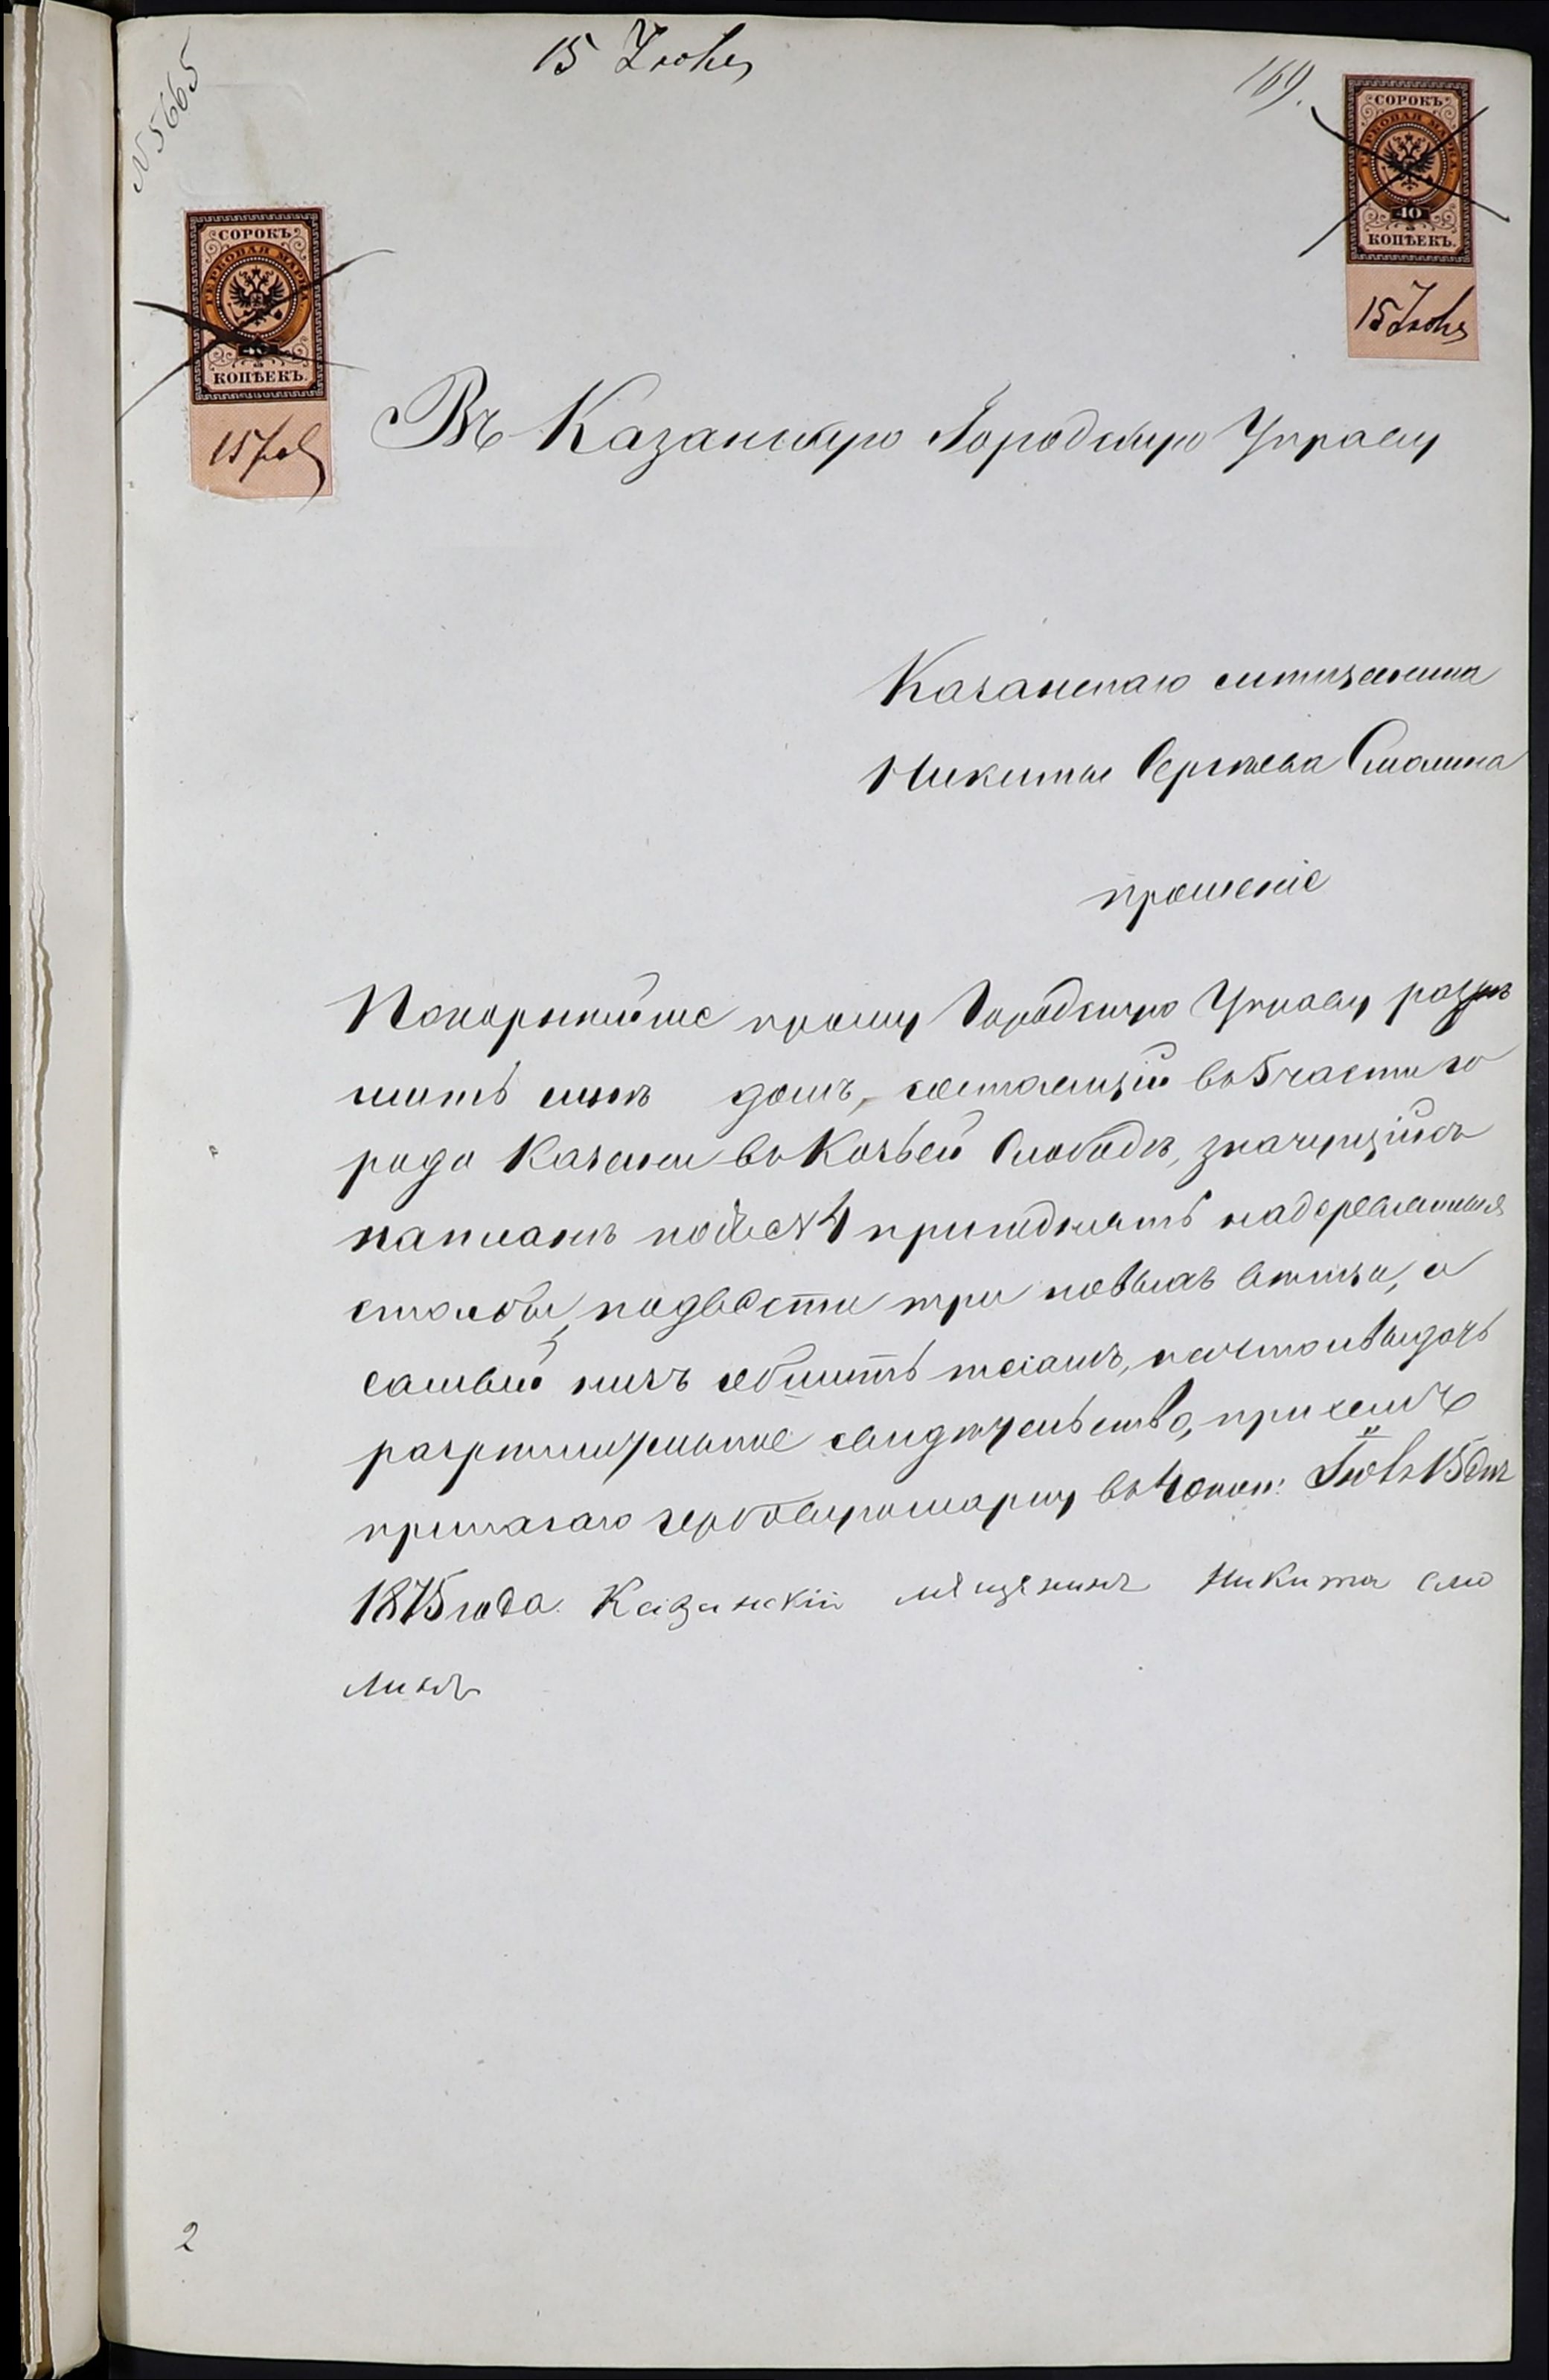 15 Іюня
169.
N 5665
СОРОКЪ
ГЕРБОВАЯ МАРКА
40
КОПѢЕКЪ.
15 Іюня
СОРОКЪ
ГЕРБОВАЯ МАРКА
40
КОПѢЕКЪ.
15 Іюня
Въ Казанскую Городскую Управу
Казанскаго мѣщанина
Никиты Сергѣева Смолина
прошеніе
Покорнѣйше прошу Городскую Управу разрѣ
шить мнѣ домъ, состоящій въ 5 части го
рода Казани въ Козьей Слободѣ, значущійся
на планѣ подъ N 4 приподнять на деревянныя
столбы, подвести три новыхъ вѣнца, а
самый низъ обшить тесомъ, на что и выдать
разрѣшительное свидѣтельство, при чемъ
прилагаю гербовую марку въ 40 коп: Іюня 15 дня
1875 года. Казанскій мѣщянинъ Никита Смо
линъ
2